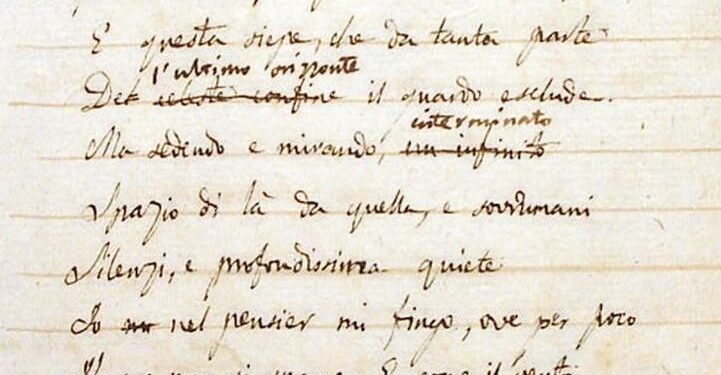 E questa siepe, che da tanta parte
l'ultimo orizzonte
Del celeste confine il guardo esclude.
interminato
Ma sedendo e mirando, un infinito
Spazio di là da quella, e sovrumani
Silenzi, e profondissima quiete
Io nel pensier mi fingo, ove per poco
E come il vento